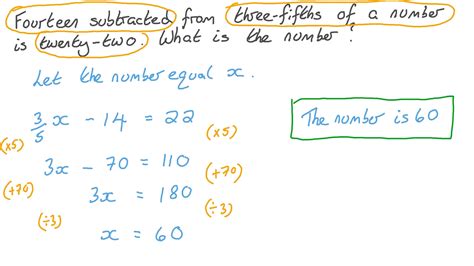 Fourteen subtracted from three-fifths of a number
is twenty-two. What is the number?
Let the number equal x.
3/5 x - 14 = 22
(x5) (x5)
3x - 70 = 110
(+70) (+70)
3x = 180
(÷3) (÷3)
x = 60
The number is 60